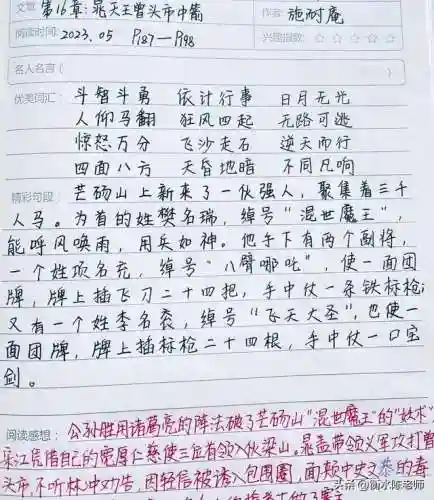 文章: 第16章:晁天王曾头市中箭 作者: 施耐庵
阅读时间: 2023.05 P187—P198 兴趣指数: ☆ ☆ ☆ ☆ ☆
名人名言( )
优美词汇: 斗智斗勇 依计行事 日月无光
人仰马翻 狂风四起 无路可逃
惊怒万分 飞沙走石 逆天而行
四面八方 天昏地暗 不同凡响
精彩句段: 芒砀山上新来了一伙强人,聚集着三千
人马。为首的姓樊名瑞,绰号"混世魔王",
能呼风唤雨,用兵如神。他手下有两个副将,
一个姓项名充,绰号"八臂哪吒",使一面团
牌,牌上插飞刀二十四把,手中仗一条铁标枪;
又有一个姓李名衮,绰号"飞天大圣",也使一
面团牌,牌上插标枪二十四根,手中仗一口宝
剑。
阅读感想: 公孙胜用诸葛亮的阵法破了芒砀山"混世魔王"的"妖术"
宋江凭借自己的宽厚仁慈使三位有领入伙梁山。晁盖带领义军攻打曾
头市,不听林冲劝告,因轻信被诱入包围圈,面颊中史文恭的毒
头条@衡水陈老师